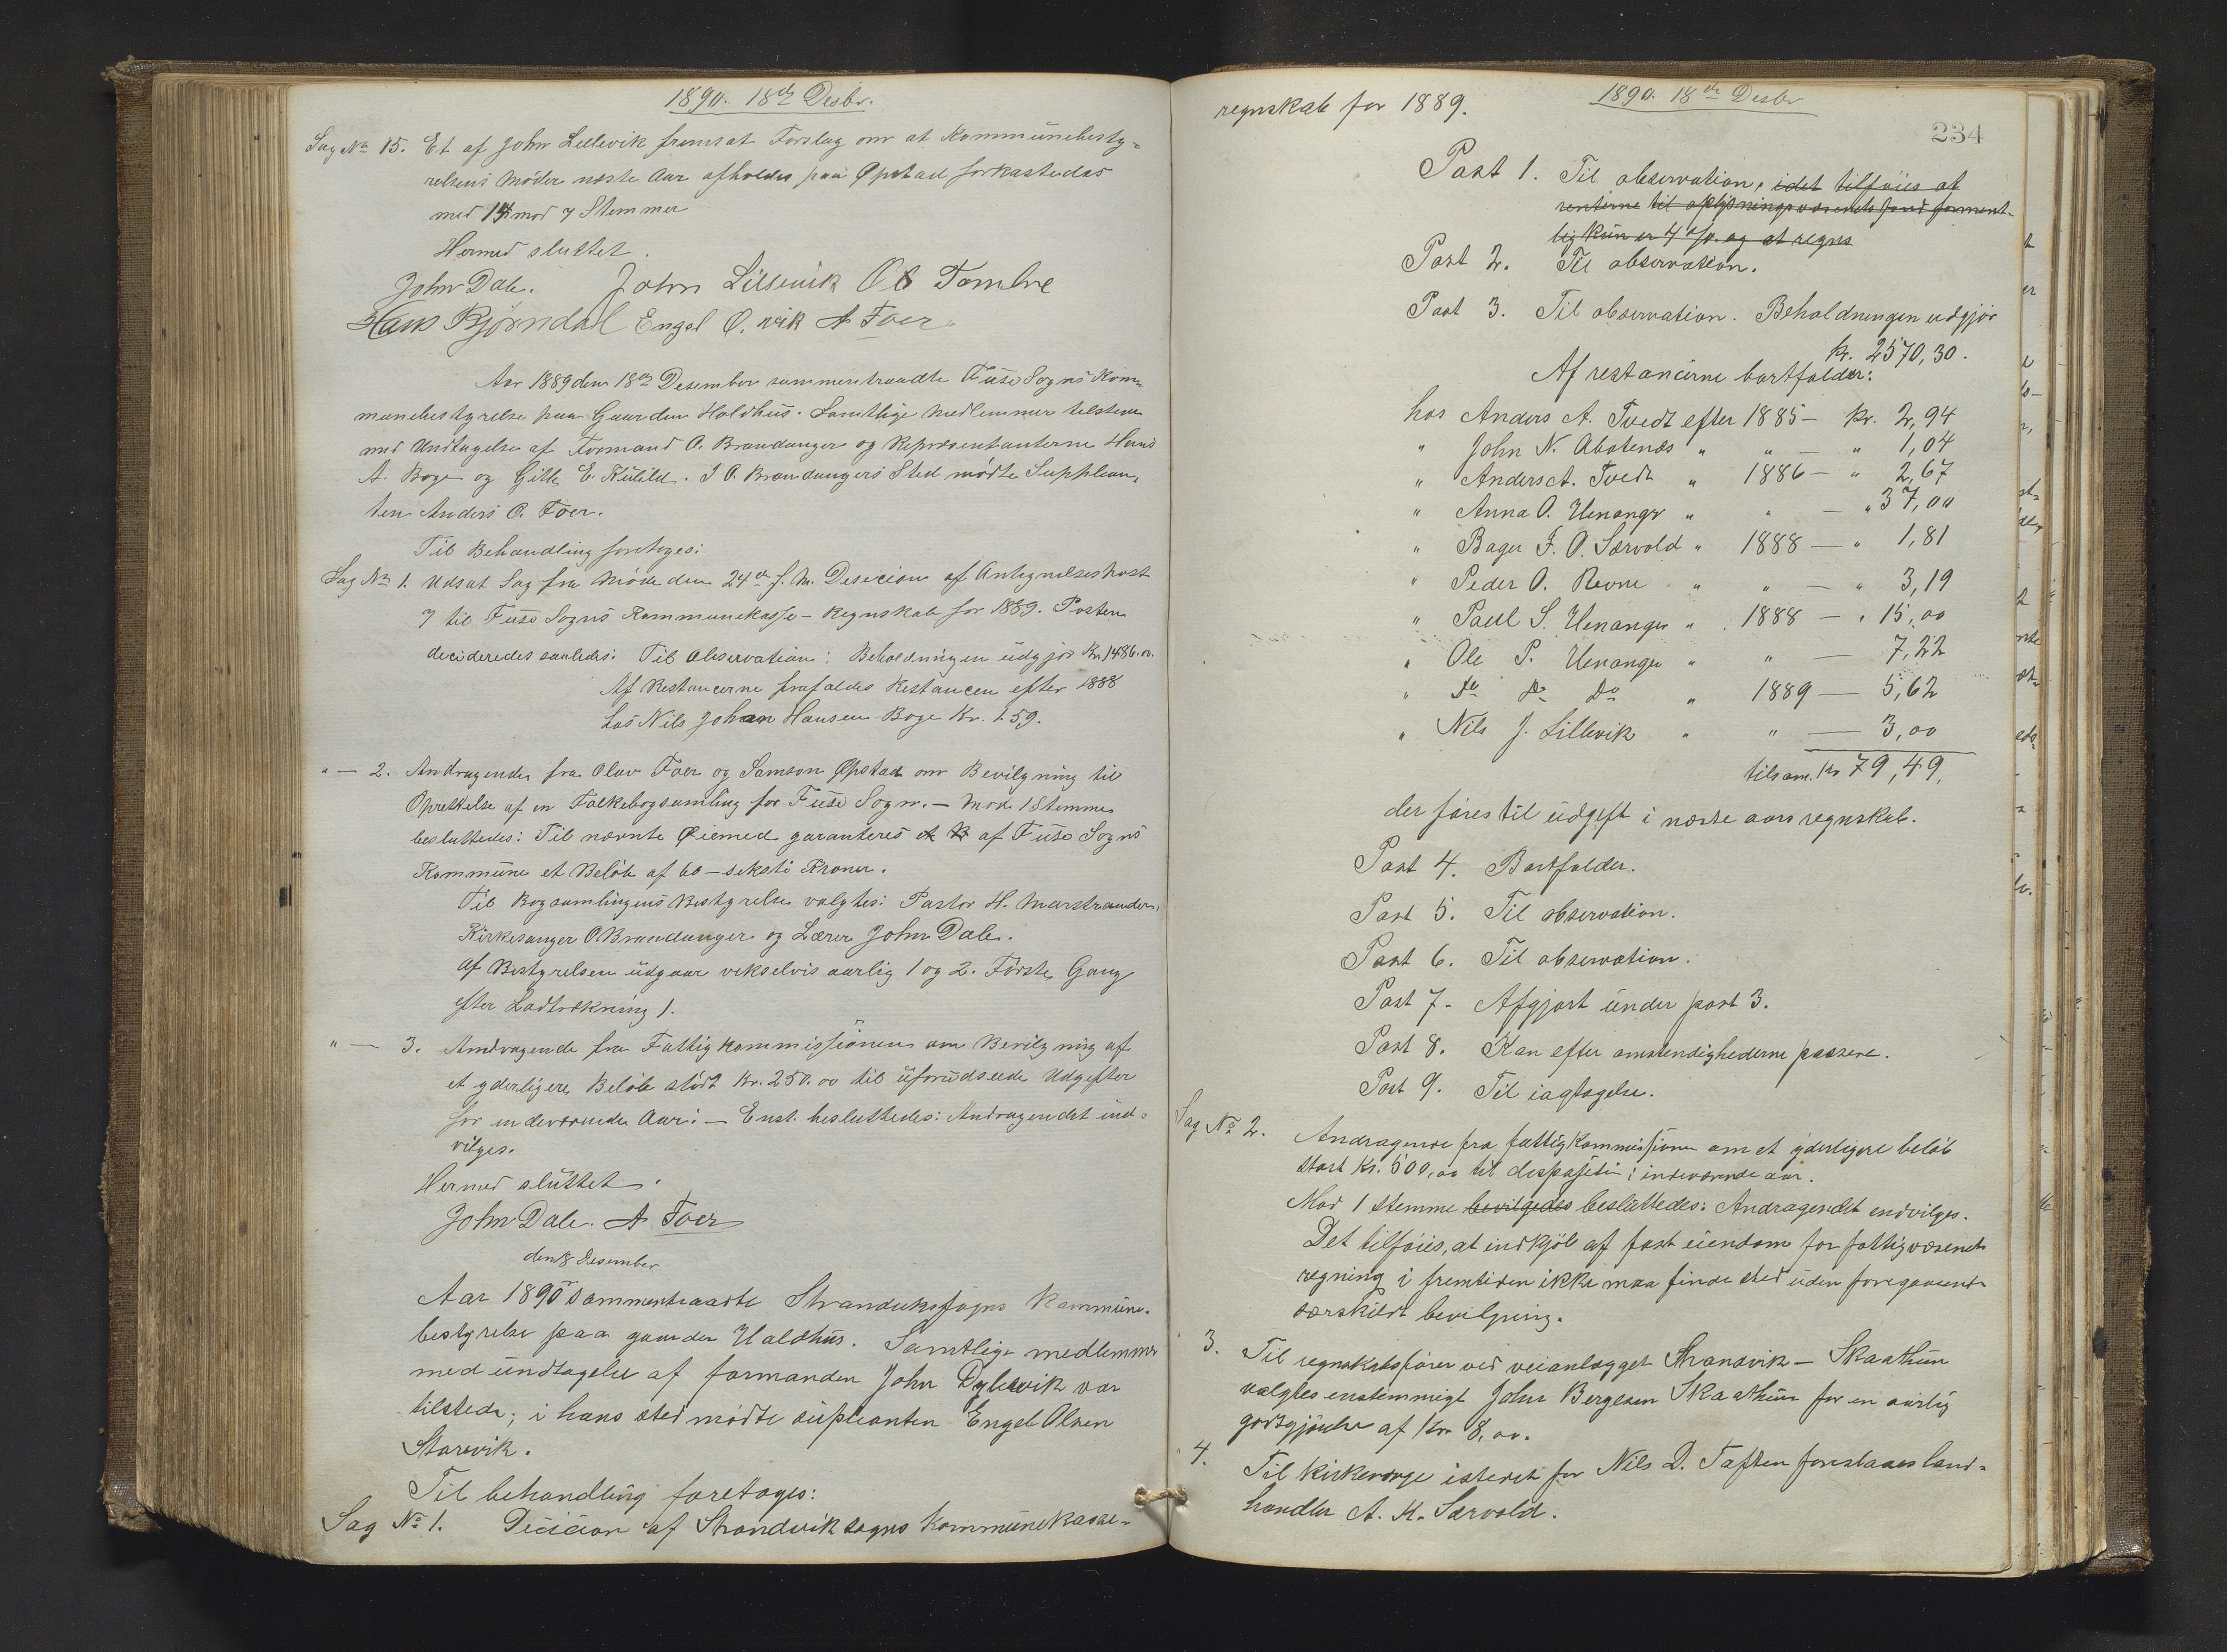 1890. 18de Desbr.
Sag No 15. Et af John Lillevik fremsat Forslag om at Kommunebesty-
relsens Møder næste Aar afholdes paa Øpstad forkastedes
med 14 mod 7 Stemmer
Hermed sluttet.
John Dale. John Lillevik Ol Tombre
Hans Bjørndal Engel O. vik A Foer
Aar 1889 den 18de Desember sammentraadte Fuse Sogns Kom-
munebestyrelse paa Gaarden Holdhus. Samtlige Medlemmer tilstede
med Undtagelse af Formand O. Brandanger og Repræsentanterne Hans
A. Boge og Gitle E. Kilild. I O. Brandangers Sted mødte Supplean-
ten Anders O. Foer.
Til Behandling foretoges:
Sag No 1. Udsat Sag fra Møde den 24de f. M. Desecion af Antegnelsespost
7 til Fuse Sogns Kommunekasse-Regnskab for 1889. Posten
decideredes saaledes: Til Observation: Beholdningen udgjør Kr. 1486.
Af Restancerne frafaldes Restancen efter 1888
hos Nils Johan Hansen Boge Kr. 1.59.
" — 2. Andragende fra Olav Foer og Samson Øpstad om Bevilgning til
Oprettelse af en Folkebogsamling for Fuse Sogn. — Mod 1 Stemme
besluttedes: Til nævnte Øiemed garanteres et K af Fuse Sogns
Kommune et Beløb af 60 — seksti Kroner.
Til Bogsamlingens Bestyrelse valgtes: Pastor H. Marstrander,
Kirkesanger O. Brandanger og Lærer John Dale.
Af Bestyrelsen udgaar vekselvis aarlig 1 og 2. Første Gang
efter Lodtrækning 1.
" — 3. Andragende fra Fattigkommissionen om Bevilgning af
et yderligere Beløb stort Kr. 250.00 til uforudseede Udgifter
for indeværende Aar: — Enst. besluttedes: Andragendet ind-
vilges.
Hermed sluttet.
John Dale. A Foer
den 18 Desember
Aar 1890 sammentraadte Strandviks sogns kommune-
bestyrelse paa gaarden Haldhus. Samtlige medlemmer
med undtagelse af formanden John Dylevik var
tilstede; i hans sted mødte suplianten Engel Olsen
Storevik.
Til behandling foretoges:
Sag No 1. Decision af Strandvik sogns kommunekasse-
1890. 18de Desbr
regnskab for 1889.
234
Post 1. Til observation, idet tilføies at
renterne til oplysningsvæsenets fond forment-
lig kun er 4 o/o. og at regns
Post 2. Til observation.
Post 3. Til observation. Beholdningen udgjør
kr. 2570,30.
Af restancerne bortfalder:
hos Anders A. Tvedt efter 1885 — kr. 2,94
" John N. Abotenæs " " — " 1,04
" Anders A. Tvedt " 1886 — " 2,67
" Anna O. Henanger " " — " 37,00
" Bager F. O. Særvold " 1888 — " 1,81
" Peder O. Revne " " — " 3,19
" Paul S. Henanger " 1888 — " 15,00
" Ole P. Henanger " " — 7,22
" Do Do Do " 1889 — 5,62
" Nils J. Lillevik " " — 3,00
tilsam. kr 79,49.
der føres til udgift i næste aars regnskab.
Post 4. Bortfalder.
Post 5. Til observation.
Post 6. Til observation.
Post 7. Afgjort under post 3.
Post 8. Kan efter omstendighederne passere.
Post 9. Til iagtagelse.
Sag No 2. Andragende fra fattigkommissionen om et yderligere beløb
stort kr. 500,00 til disposition i indeværende aar.
Mod 1 stemme bevilgedes besluttedes: Andragendet indvilges.
Det tilføies, at indkjøb af fast eiendom for fattigvæsenets
regning i fremtiden ikke maa finde sted uden foregaaende
særskildt bevilgning.
3. Til regnskabsfører ved veianlægget Strandvik — Skaathun
valgtes enstemmigt Johs Bergesen Skaathun for en aarlig
godtgjørelse af kr 8,00.
4. Til kirkeværge istedet for Nils D. Taften foreslaaes land-
handler A. H. Særvold.